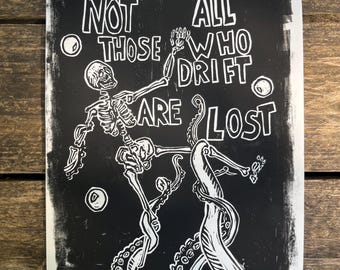 NOT ALL
THOSE WHO
DRIFT
ARE LOST